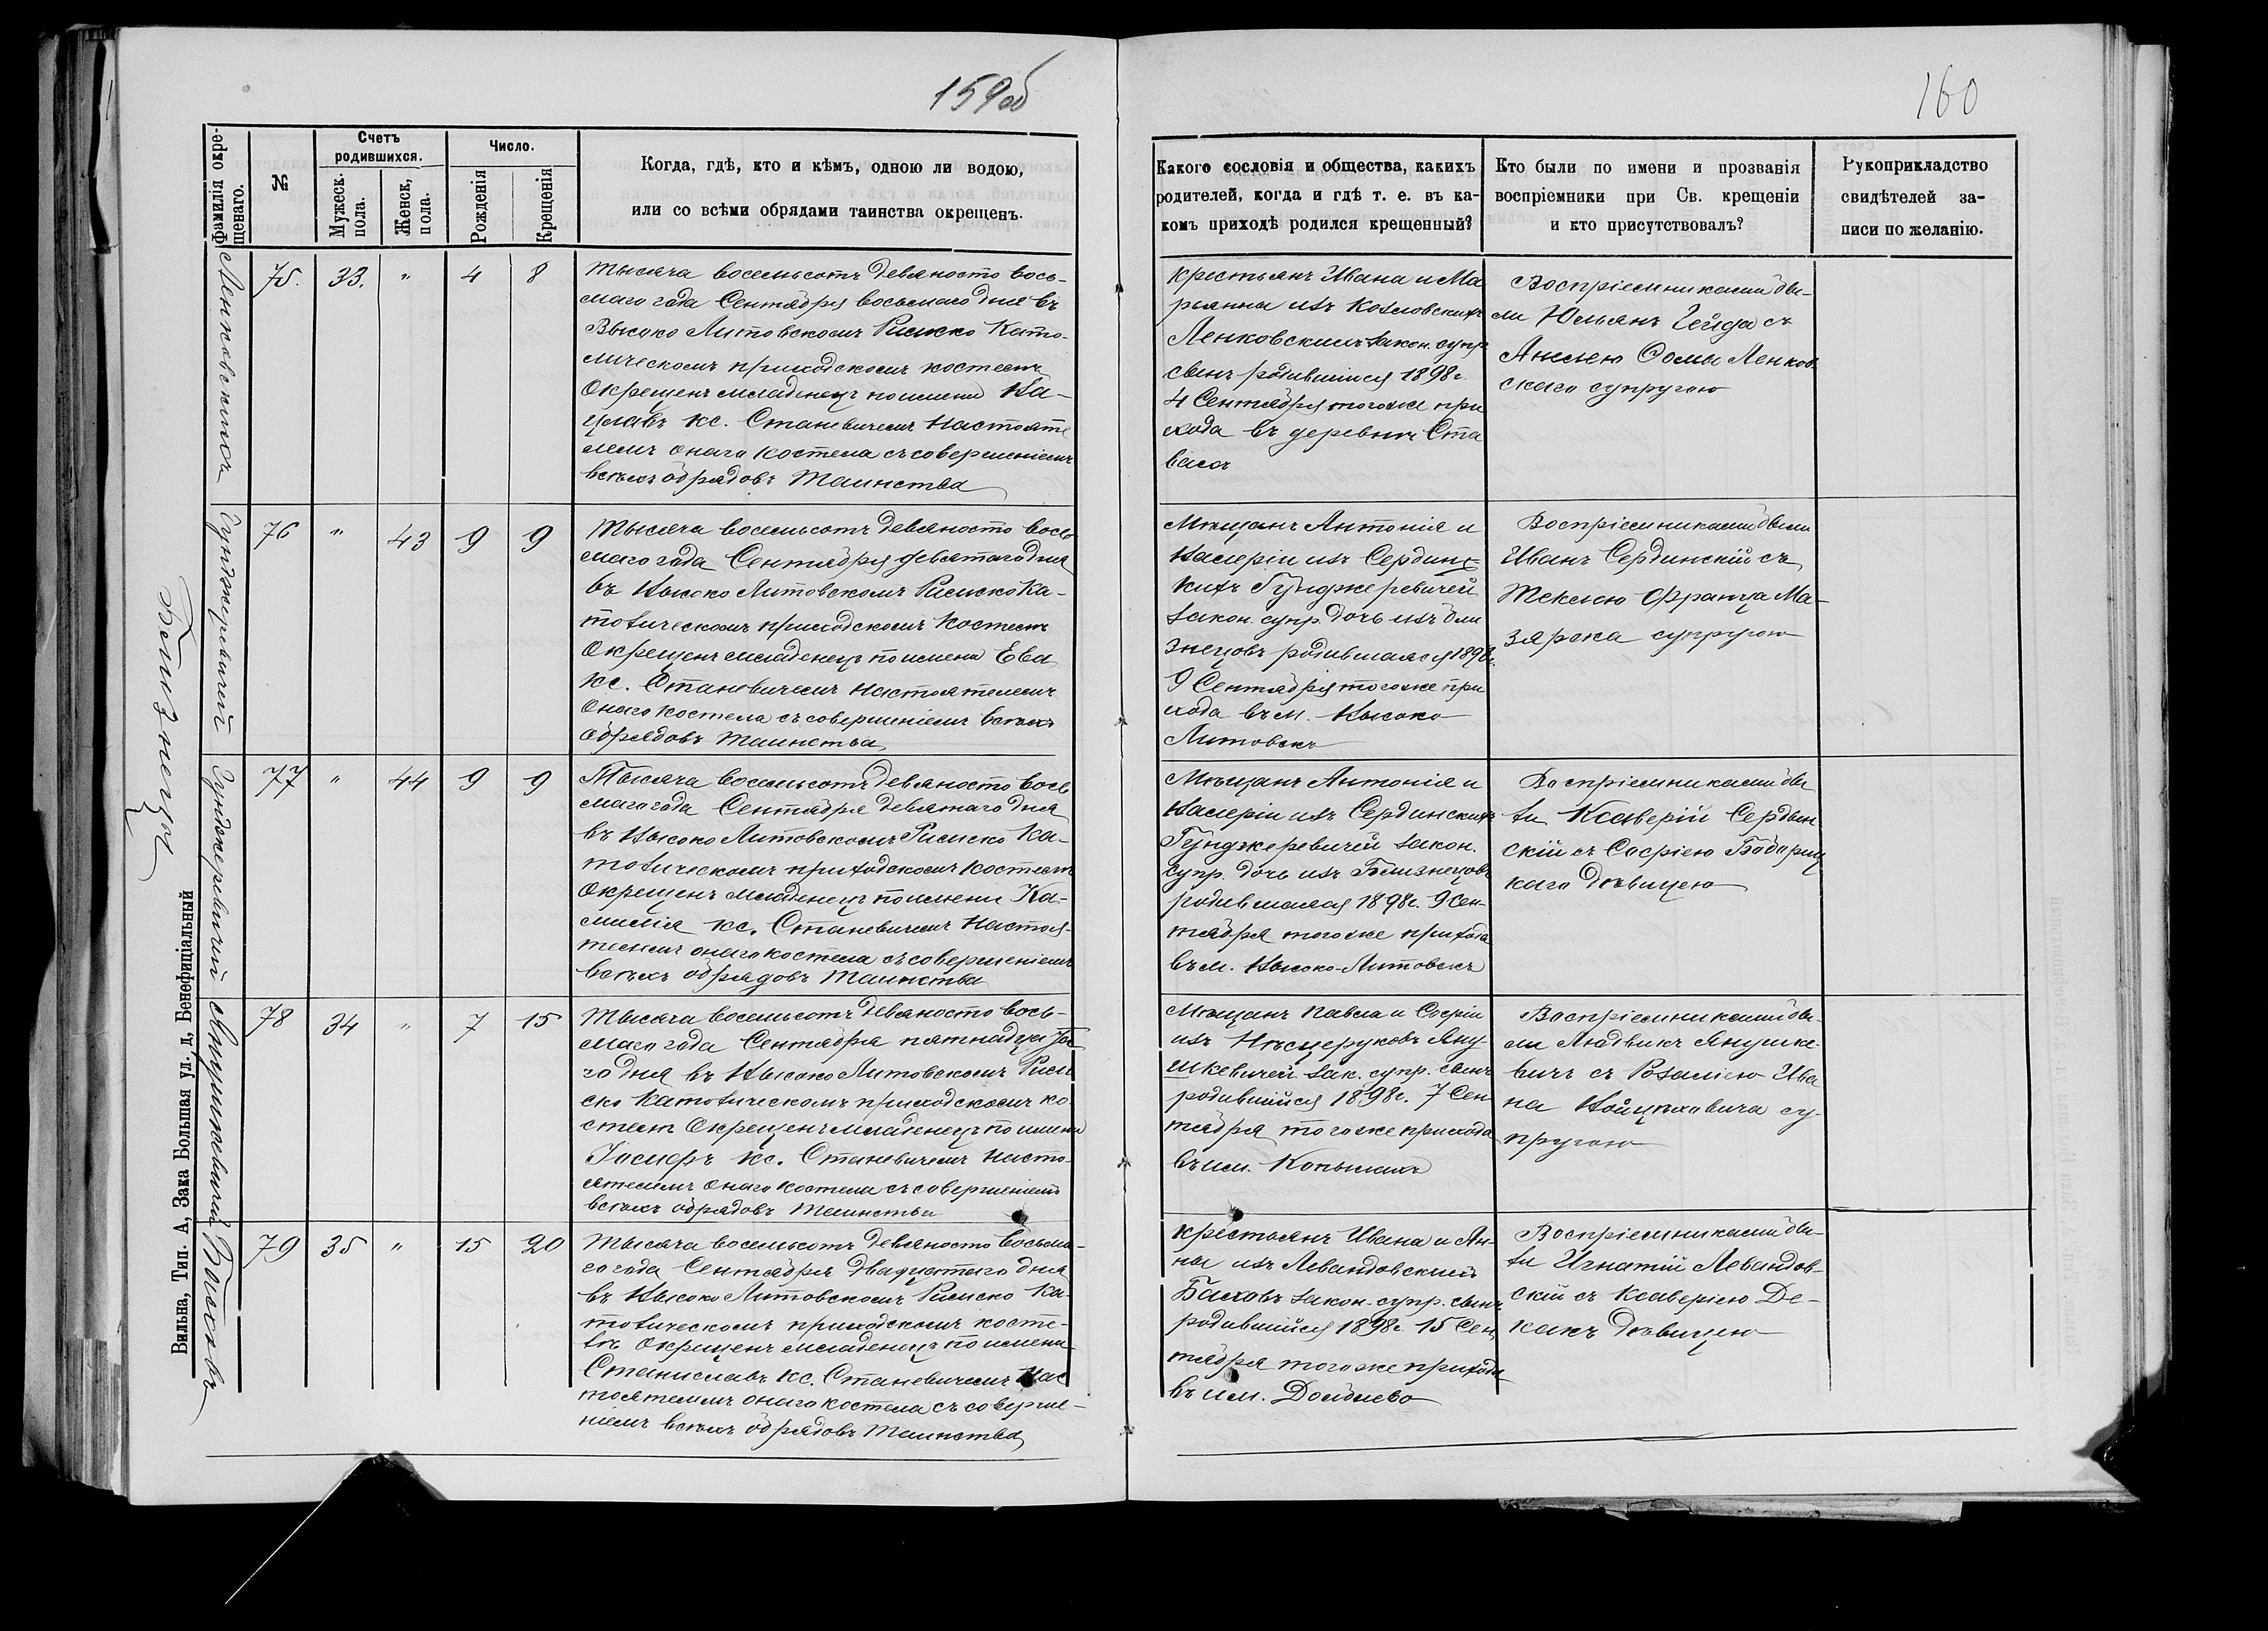 159об
160
Фамилія окре-
щенаго.
№
Счетъ
родившихся.
Мужеск.
пола.
Женск.
пола.
Число.
Рожденія
Крещенія
Когда, гдѣ, кто и кѣмъ, одною ли водою,
или со всѣми обрядами таинства окрещенъ.
Какого сословія и общества, какихъ
родителей, когда и гдѣ т. е. въ ка-
комъ приходѣ родился крещенный?
Кто были по имени и прозванія
воспріемники при Св. крещеніи
и кто присутствовалъ?
Рукоприкладство
свидѣтелей за-
писи по желанію.
Ленковскихъ
75. 33. " 4 8
Тысяча восемьсотъ девяносто вось-
маго года Сентября восьмаго дня въ
Высоко Литовскомъ Римско Като-
лическомъ приходскомъ костелѣ
Окрещенъ младенецъ по имени Ва-
цлавъ кс. Станевичемъ Настояте
лемъ онаго костела съ совершеніемъ
всѣхъ обрядовъ Таинства
крестьянъ Ивана и Ма
рьянны изъ Козловскихъ
Ленковскихъ закон. супр
сынъ родившійся 1898г.
4 Сентября тогоже при
хода въ деревни Ста
васъ
Воспріемниками бы-
ли Юльянъ Гейда съ
Анелею Фомы Ленков
скаго супругою
Гунджеревичей
76 " 43 9 9
Тысяча восемьсотъ девяносто вось
маго года Сентября девятаго дня
въ Высоко Литовскомъ Римско Ка-
толическомъ приходскомъ Костелѣ
Окрещенъ младенецъ по имени Ева
кс. Станевичемъ Настоятелемъ
Онаго костела съ совершеніемъ всѣхъ
Обрядовъ Таинства
Мѣщанъ Антонія и
Валеріи изъ Сердинс
кихъ Гунджеревичей
закон. супр. дочь изъ бли
знецовъ родившаяся 1898г.
9 Сентября тогоже при
хода въ м. Высоко
Литовскъ
Воспріемниками были
Иванъ Сердинскій съ
Теклею Франца Ма-
зярока супругою
Близнецы
Гунджеревичей
77 " 44 9 9
Тысяча восемьсотъ девяносто вось
маго года Сентября девятаго дня
въ Высоко Литовскомъ Римско Ка-
толическомъ приходскомъ костелѣ
Окрещенъ младенецъ по имени Ка-
милія кс. Станевичемъ Настоя-
телемъ онаго костела съ совершеніемъ
всѣхъ обрядовъ Таинства
Мѣщанъ Антонія и
Валеріи изъ Сердинскихъ
Гунджеревичей закон.
супр. дочь изъ Близнецовъ
родившаяся 1898г. 9 Сен-
тября тогоже прихода
въ м. Высоко-Литовскъ
Воспріемниками бы
ли Ксаверій Сердын
скій съ Софіею
каго дѣвицею
Янушкевичей
78 34 " 7 15
Тысяча восемьсотъ девяносто вось-
маго года Сентября пятнадцата
го дня въ Высоко Литовскомъ Рим
ско Католическомъ приходскомъ ко-
стелѣ Окрещенъ младенецъ по имени
Іосифъ кс. Станевичемъ Насто-
ятелемъ онаго костела съ совершеніемъ
всѣхъ обрядовъ Таинства
Мѣщанъ Павла и Софіи
изъ Яну-
шкевичей зак. супр. сынъ
родившійся 1898г. 7 Сен
тября тогоже прихода
въ им. Копылахъ
Воспріемниками бы-
ли Людвикъ Янушке-
вичъ съ Розаліею Ива
на Войцѣховича су-
пругою
Басовъ
79 35 " 15 20
Тысяча восемьсотъ девяносто восьма-
го года Сентября двадцатаго дня
въ Высоко Литовскомъ Римско Ка-
толическомъ приходскомъ косте-
лѣ Окрещенъ младенецъ по имени
Станиславъ кс. Станевичемъ Нас
тоятелемъ онаго костела съ соверше-
ніемъ всѣхъ обрядовъ Таинства
крестьянъ Ивана и Ан-
ны изъ Левандовскихъ
закон. супр. сынъ
родившійся 1898г. 15 Сен
тября тогоже прихода
въ им. Долбнево
Воспріемниками бы-
ли Игнатій Левандов-
скій съ Ксаверіею Де-
какъ дѣвицею
Вильна, Тип. А, Зака Большая ул. д, Бенефиціальный